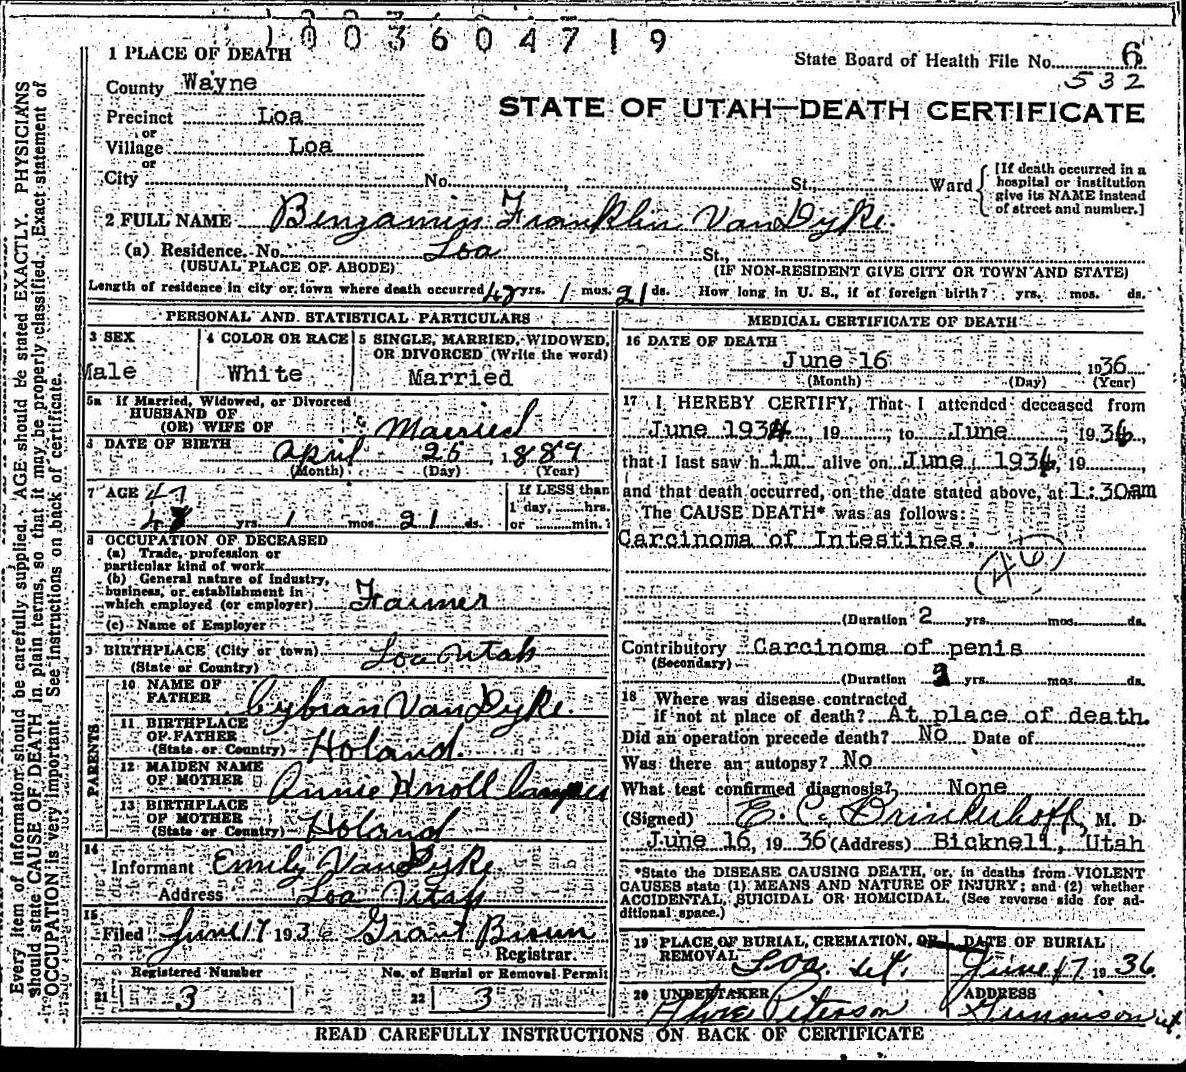 1 0 0 3 6 0 4 7 1 9
1 PLACE OF DEATH
State Board of Health File No. 6
532
County Wayne
STATE OF UTAH—DEATH CERTIFICATE
Precinct Loa
or
Village Loa
or
City No. , St., Ward
[If death occurred in a hospital or institution give its NAME instead of street and number.]
2 FULL NAME Benjamin Franklin VanDyke.
(a) Residence. No. Loa St.,
(USUAL PLACE OF ABODE) (IF NON-RESIDENT GIVE CITY OR TOWN AND STATE)
Length of residence in city or town where death occurred 47 yrs. 1 mos. 21 ds. How long in U. S., if of foreign birth? yrs. mos. ds.
PERSONAL AND STATISTICAL PARTICULARS
3 SEX 4 COLOR OR RACE 5 SINGLE, MARRIED, WIDOWED, OR DIVORCED (Write the word)
Male White Married
5a If Married, Widowed, or Divorced
HUSBAND OF
(OR) WIFE OF Married
6 DATE OF BIRTH April 26 1889
(Month) (Day) (Year)
7 AGE 47
yrs. 1 mos. 21 ds.
If LESS than
1 day, hrs.
or min.
8 OCCUPATION OF DECEASED
(a) Trade, profession or
particular kind of work
(b) General nature of industry,
business, or establishment in
which employed (or employer) Farmer
(c) Name of Employer
9 BIRTHPLACE (City or town) Loa Utah
(State or Country)
PARENTS
10 NAME OF
FATHER Cybran VanDyke.
11 BIRTHPLACE
OF FATHER
(State or Country) Holand.
12 MAIDEN NAME
OF MOTHER Annie Knoll
13 BIRTHPLACE
OF MOTHER
(State or Country) Holand
14
Informant Emily VanDyke
Address Loa Utah
15
Filed June 17 1936 Grant Brown
Registrar.
Registered Number No. of Burial or Removal Permit
21 3 22 3
MEDICAL CERTIFICATE OF DEATH
16 DATE OF DEATH
June 16 1936
(Month) (Day) (Year)
17 I HEREBY CERTIFY, That I attended deceased from
June 1934, 19 , to June , 1936,
that I last saw h im alive on June, 1936, 19 ,
and that death occurred, on the date stated above, at 1:30am
The CAUSE DEATH* was as follows:
Carcinoma of Intestines.
(46)
(Duration 2 yrs. mos. ds.
Contributory Carcinoma of penis
(Secondary)
(Duration yrs. mos. ds.
18 Where was disease contracted
if not at place of death? At place of death.
Did an operation precede death? No Date of
Was there an autopsy? No
What test confirmed diagnosis? None
(Signed) E. C. Brinkerhoff, M. D.
June 16, 1936 (Address) Bicknell, Utah
*State the DISEASE CAUSING DEATH, or, in deaths from VIOLENT
CAUSES state (1) MEANS AND NATURE OF INJURY; and (2) whether
ACCIDENTAL, SUICIDAL OR HOMICIDAL. (See reverse side for ad-
ditional space.)
19 PLACE OF BURIAL, CREMATION, OR
REMOVAL Loa. Ut.
DATE OF BURIAL
June 17 1936
20 UNDERTAKER ADDRESS
Peterson Gunnison Ut.
READ CAREFULLY INSTRUCTIONS ON BACK OF CERTIFICATE
Every item of information should be carefully supplied. AGE should be stated EXACTLY. PHYSICIANS
should state CAUSE OF DEATH in plain terms, so that it may be properly classified. Exact statement of
OCCUPATION is very important. See instructions on back of certificate.